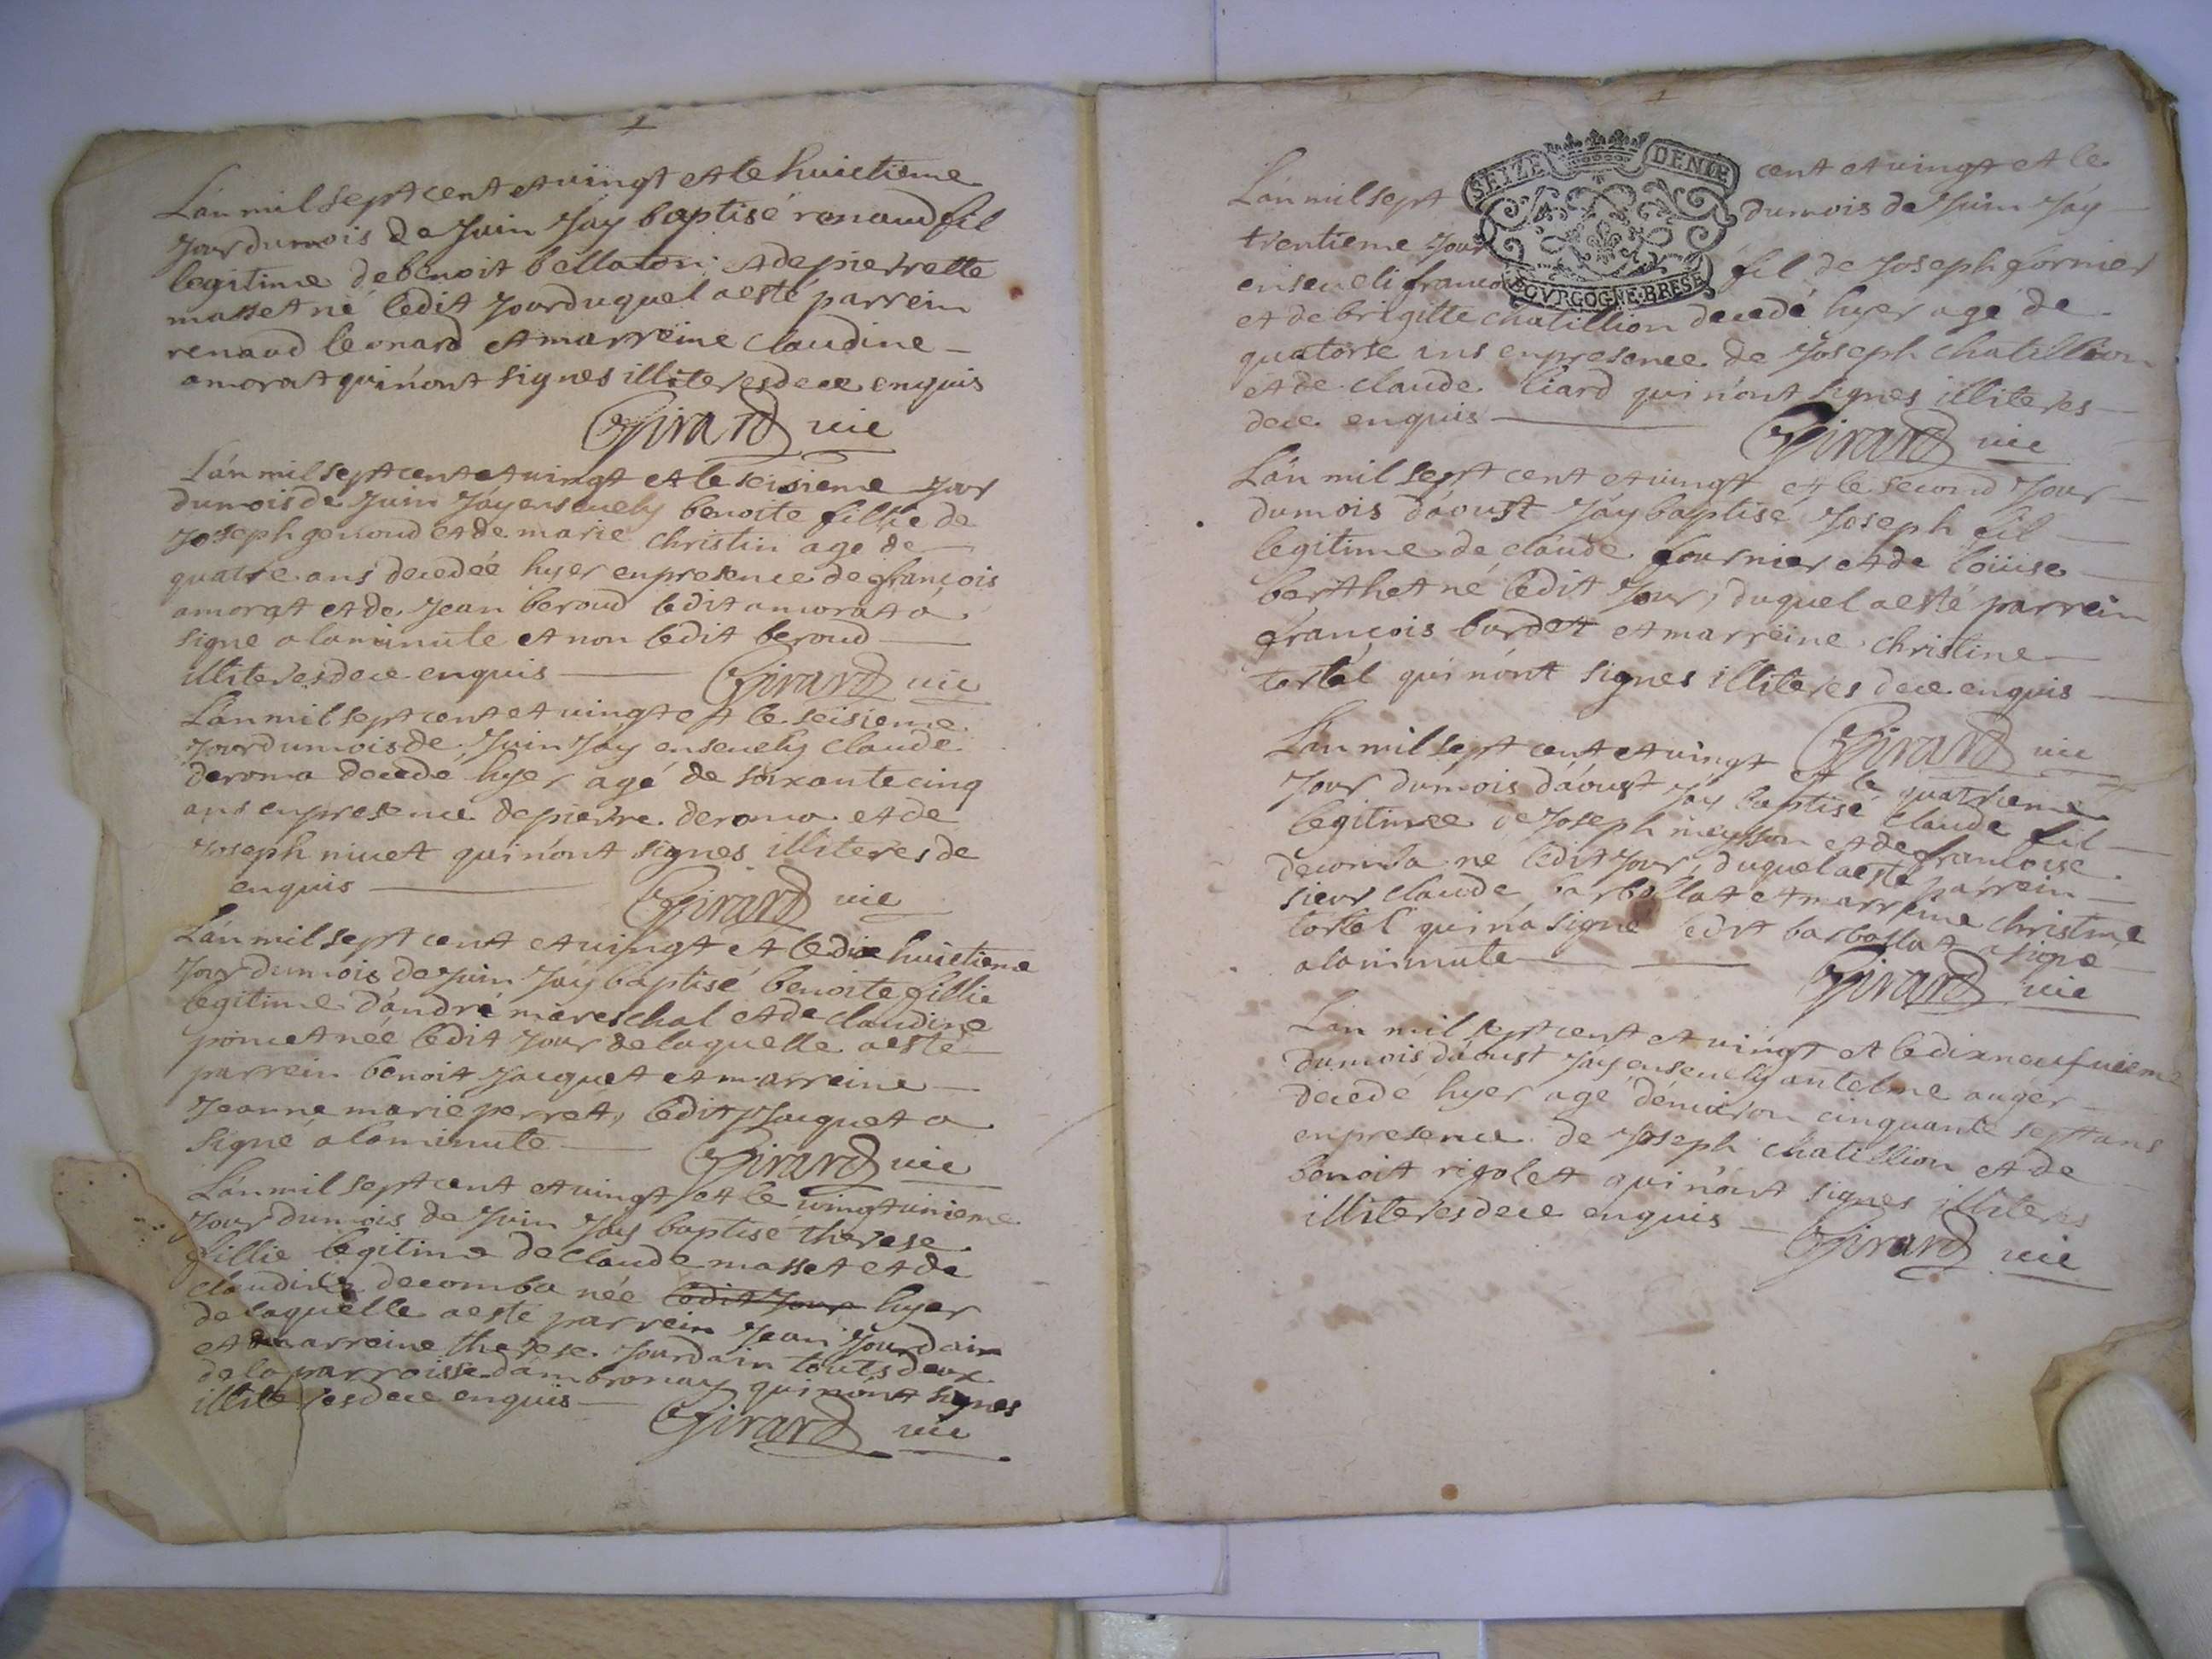 Lán mil sept cent et vingt et le huictieme
Jour du mois de Juin Jáy baptisé renaud fil
legitime de benoit bellaton et de pierrette
masset né ledit Jour duquel a esté parrein
renaud leonard et marreine Claudine
amorat qui n'ont signes illiteres de ce enquis
Girard vic
Lán mil sept cent et vingt et le seisieme Jour
du mois de Juin Jáy ensevely benoite fillie de
Joseph genoud et de marie christin agé de
quatre ans decedée hyer en presence de françois
amorat et de Jean beroud ledit amorat a
signe a la minute et non ledit beroud
illiteres de ce enquis Girard vic
Lán mil sept cent et vingt et le seisieme
Jour du mois de Juin Jáy ensevely Claude
deroma decedé hyer agé de soixante cinq
ans en presence de pierre deroma et de
Joseph nivet qui n'ont signes illiteres de
enquis Girard vic
Lán mil sept cent et vingt et le dix huictieme
Jour du mois de Juin Jáy baptisé benoite fillie
legitime d'andré mareschal et de Claudine
poncet née ledit Jour de laquelle a esté
parrein benoit Jacquet et marreine
Jeanne marie perret, ledit Jacquet a
signé a la minute Girard vic
Lán mil sept cent et vingt et le vingt unieme
Jour du mois de Juin Jáy baptisé therese
fillie legitime de Claude masset et de
Claudine decomba née ledit Jour hyer
de laquelle a esté parrein Jean Jourdain
et marreine therese Jourdain touts deux
de la parroisse d'ambronay qui n'ont signes
illiteres de ce enquis
Girard vic
SEIZE DENIE
BOVRGOGNE·BRESE
Lán mil sept cent et vingt et le
trentieme Jour du mois de Juin Jáy
enseveli franco fil de Joseph fornier
et de brigitte chatillion decedé hyer agé de
quatorse ans en presence de Joseph chatillion
et de claude liard qui n'ont signes illiteres
de ce enquis Girard vic
Lán mil sept cent et vingt et le second Jour
du mois d'áoust Jáy baptisé Joseph fil
legitime de claude fournier et de loüise
berthet né ledit Jour, duquel a esté parrein
françois bardet et marreine christine
tortel qui n'ont signes illiteres de ce enquis
Girard vic
Lán mil sept cent et vingt et le quatrieme
Jour du mois d'áoust Jáy baptisé Claude fil
legitime de Joseph meysson et de francoise
decomba né ledit Jour, duquel a esté parrein
sieur claude barbollat et marreine christine
tortel qui n'a signe ledit barbollat a signé
a la minute
Girard vic
Lán mil sept cent et vingt et le dixneufvieme
du mois d'áoust Jáy ensevely antelme auger
decedé hyer agé d'environ cinquante sept ans
en presence de Joseph chatillion et de
benoit rigolet qui n'ont signes illiteres
illiteres de ce enquis
Girard vic